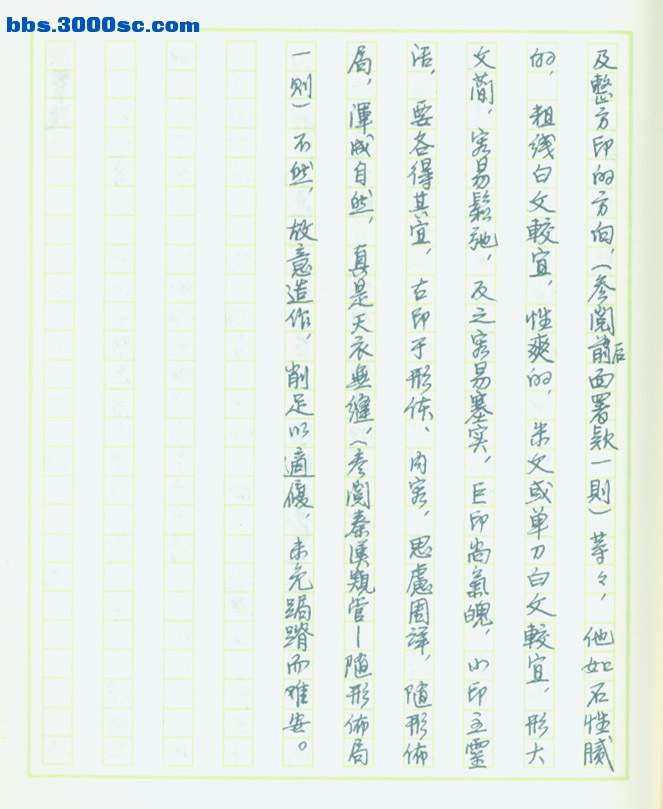 bbs.3000sc.com
及整方印的方向，（参阅前后面署款一則）等々，他如石性腻
的，粗线白文較宜，性爽的，朱文或单刀白文較宜，形大
文简，容易鬆弛，反之容易塞实，巨印尚氣魄，小印主靈
活，要各得其宜，古印于形体、内容，思慮周详，随形佈
局，渾成自然，真是天衣無缝，（参阅秦漢窥管—随形佈局
一则）不然，故意造作，削足以適履，未免跼蹐而难安。